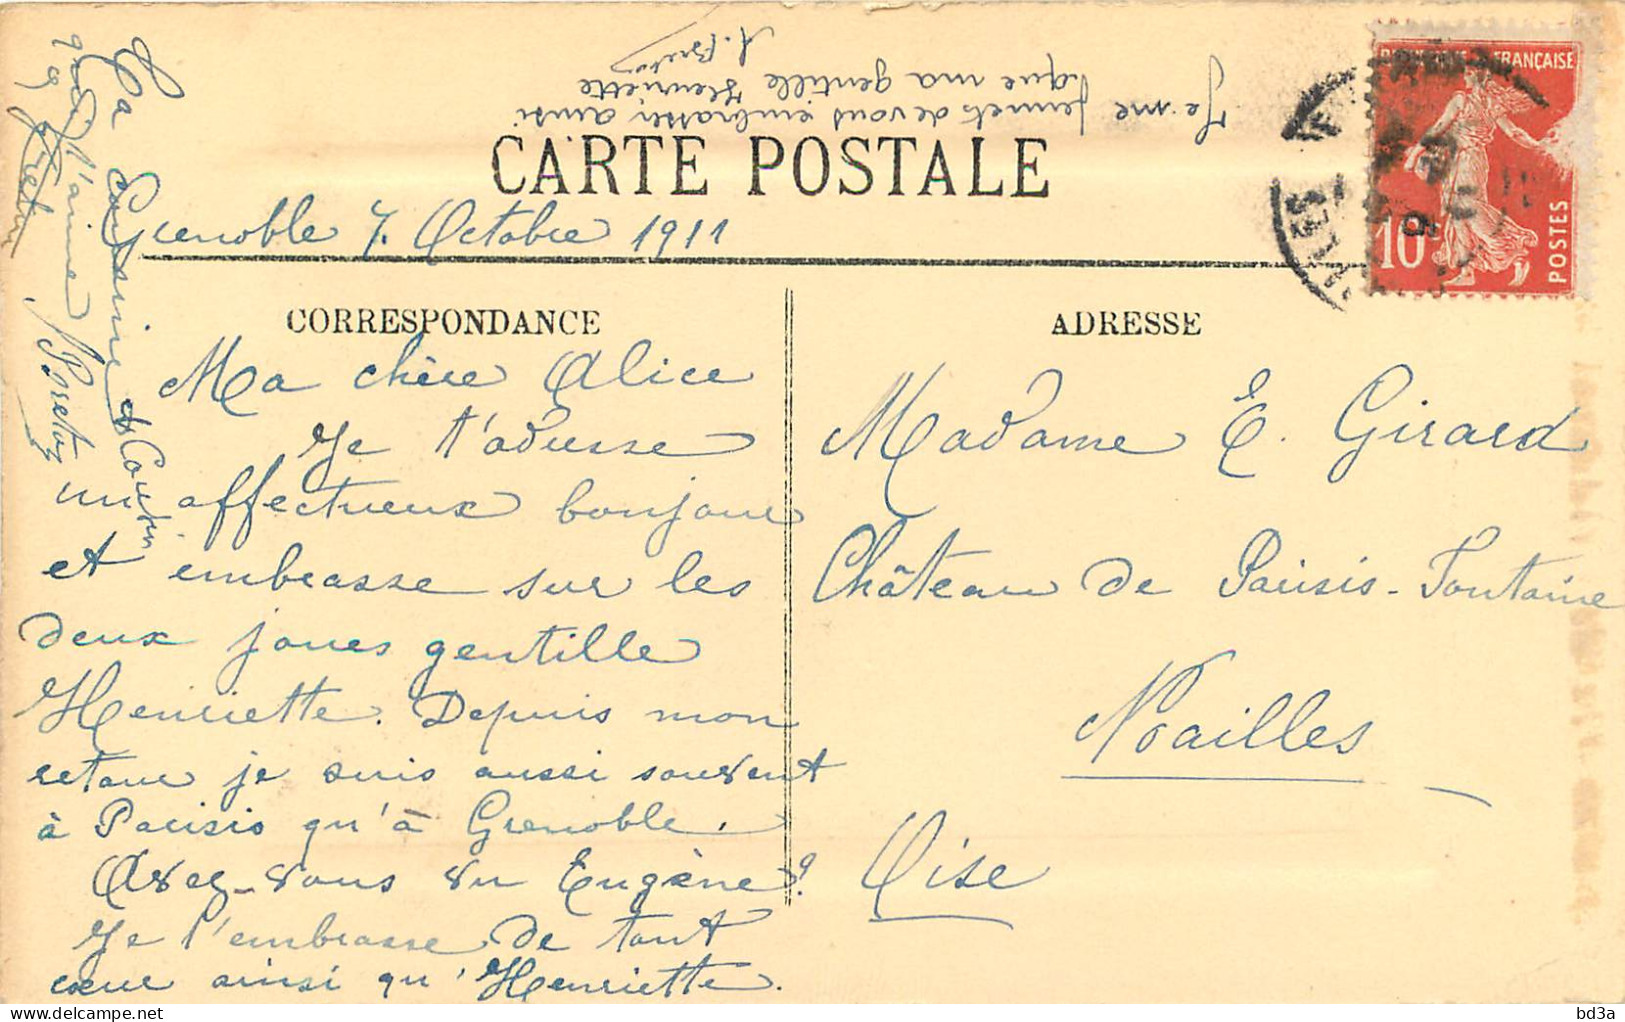 Je me
permets de vous embrasser ainsi
que ma gentille Henriette
CARTE POSTALE
Grenoble 7 Octobre 1911
FRANÇAISE
10c
POSTES
CORRESPONDANCE
Ma chère Alice
Je t'adresse
un affectueux bonjour
et embrasse sur les
deux joues gentille
Henriette. Depuis mon
retour je suis aussi souvent
à Parisis qu'à Grenoble.
Avez-vous vu Eugène ?
Je l'embrasse de tout
cœur ainsi qu'Henriette.
Ta Cousine et Cousin
qui t'aime
ADRESSE
Madame E. Girard
Château de Parisis-Fontaine
Noailles
Oise
bd3a